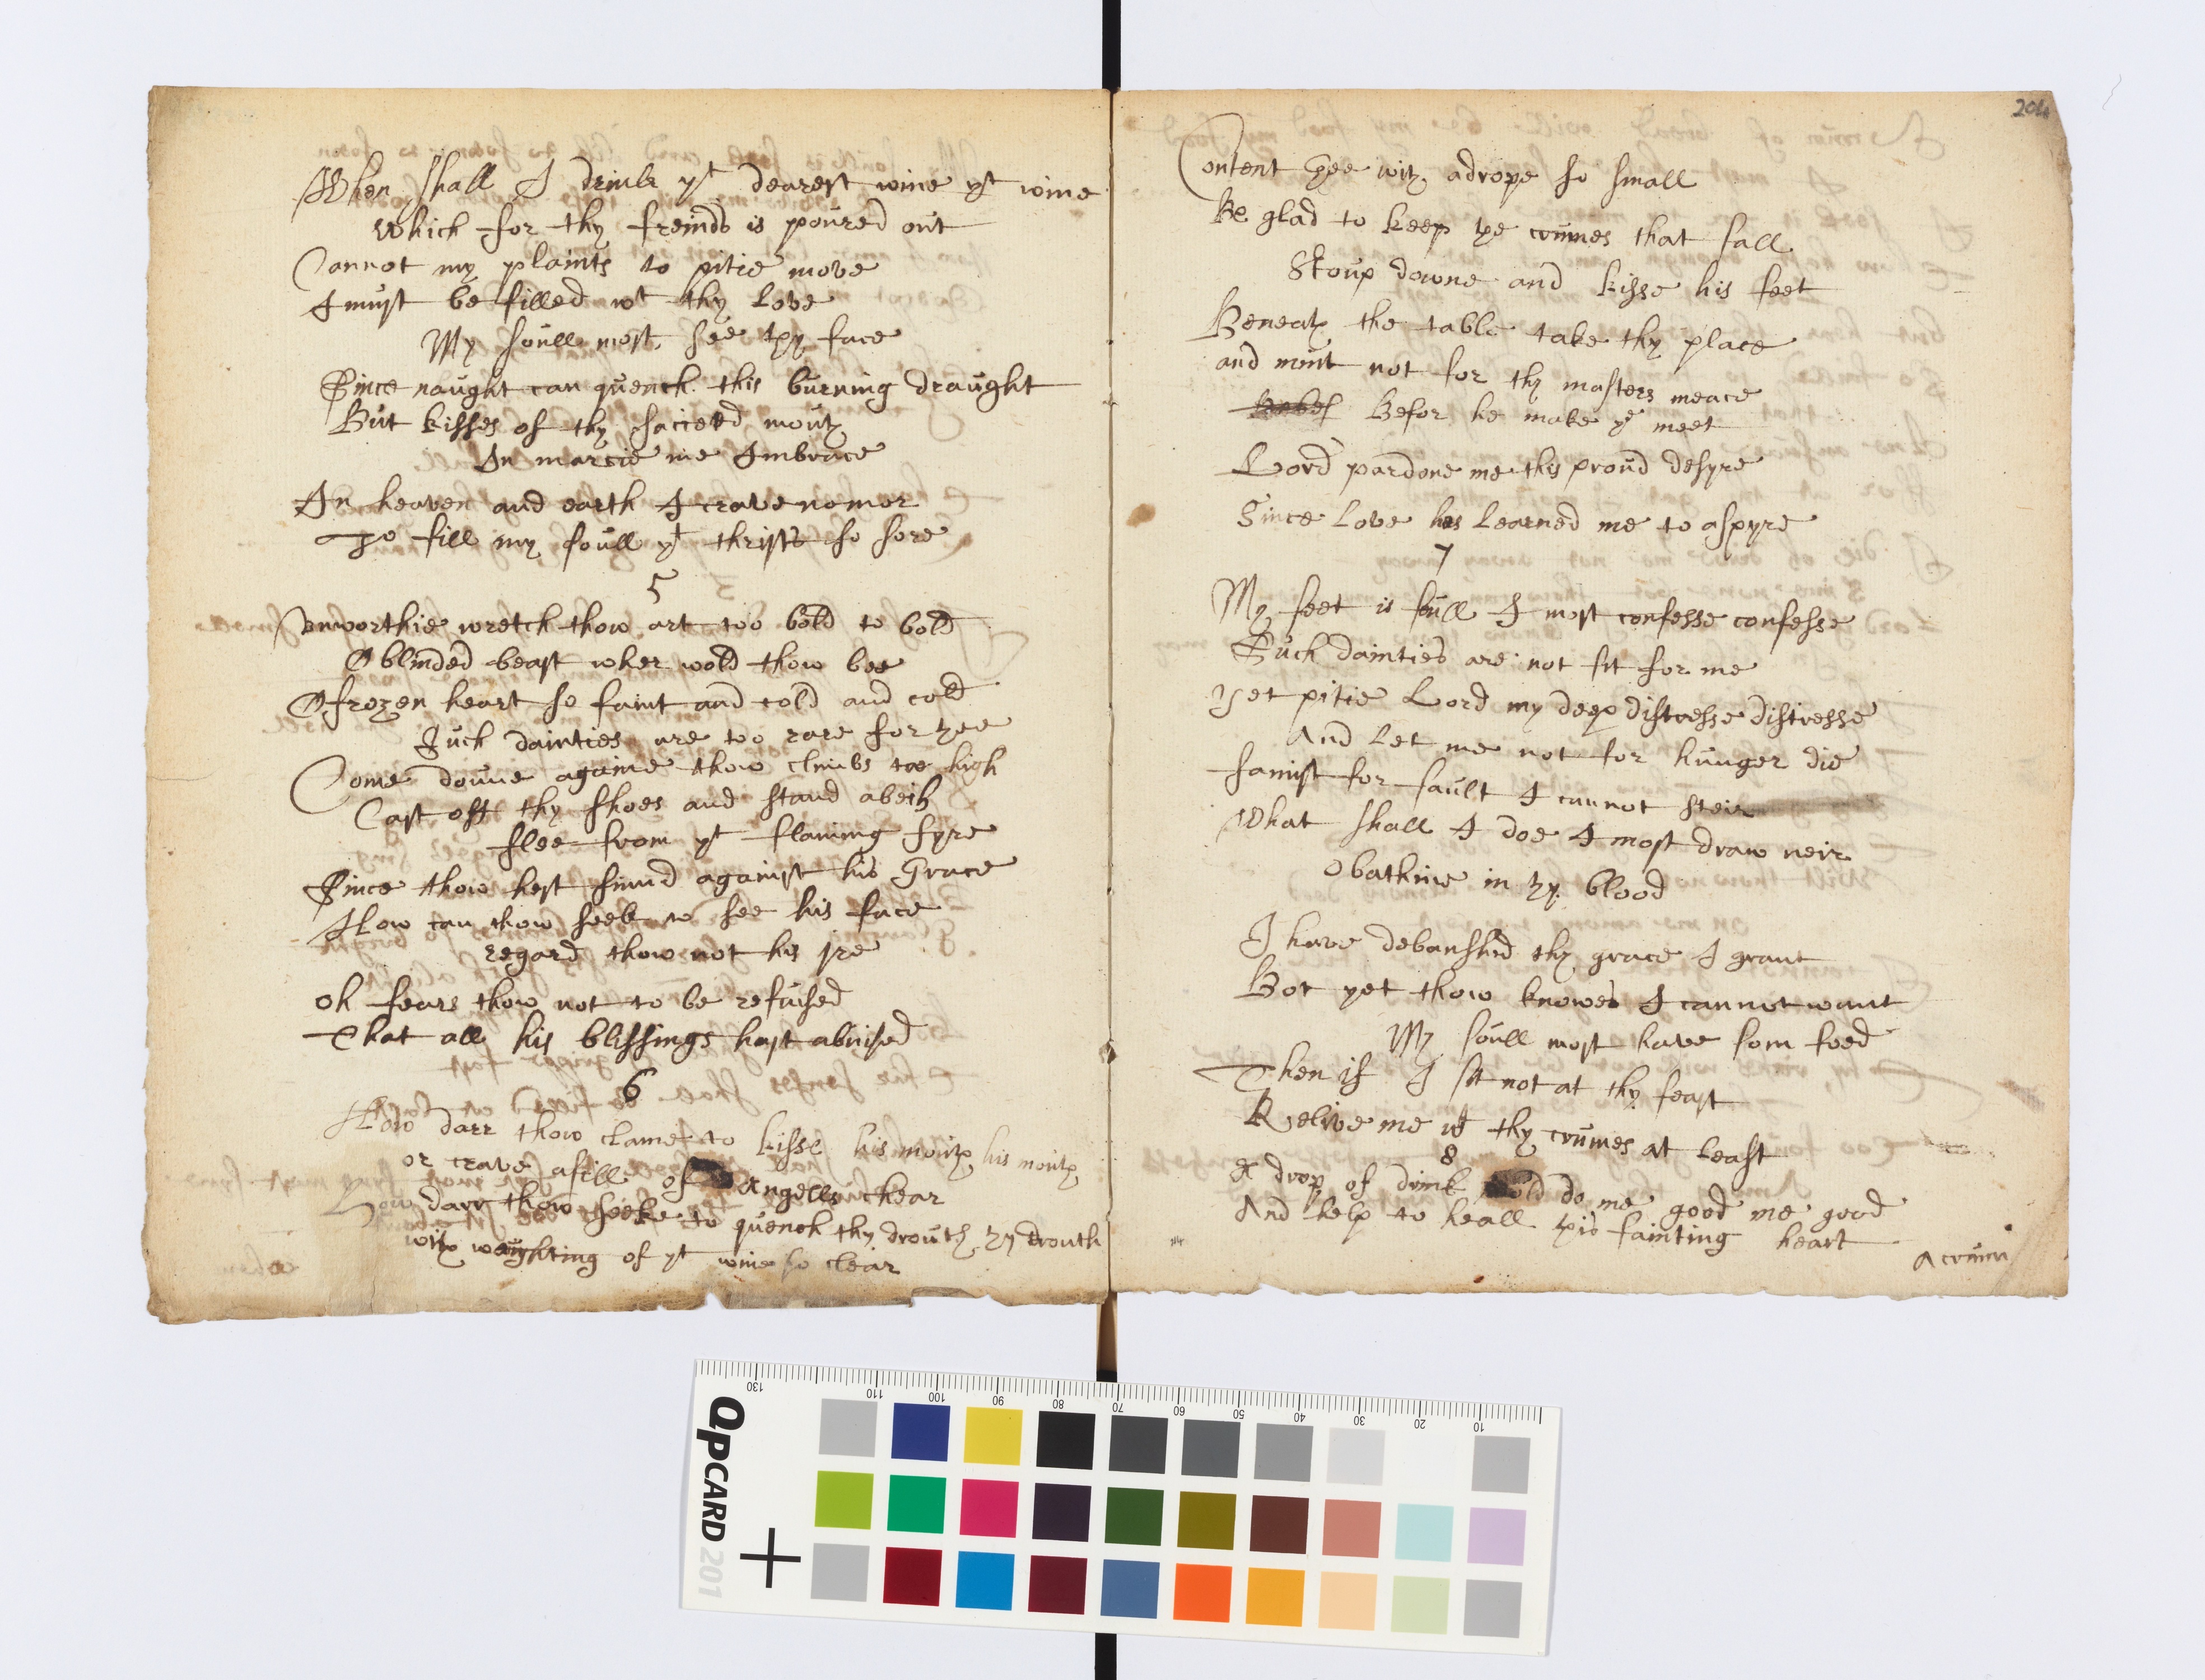 When shall I drink yt dearest wine yt wine
Which for thy freinds is poured out
Cannot my plaints to pitie move
I must be filled wt thy love
My soull most see thy face
Since naught can quench this burning draught
But kisses of thy sacered mouth
In marcie me Imbrace
In heaven and earth I crave no mor
To fill my soull yt thrists so sore
5
Unworthie wretch thow art too bold to bold
O blinded beast wher wold thow bee
O frozen heart so faint and cold and cold
Such dainties are too rare for thee
Come doune againe thow climbs too high
Cast off thy shoes and stand abeih
flee from yt flaming fyre
Since thow hest sinnd against his Grace
How can thow seek to see his face
regard thow not his ire
oh fears thow not to be refuised
That all his blissings hast abuised
6
How darr thow clame to kisse his mouth his mouth
or crave a fill of Angells chear
How darr thow seeke to quench thy drouth thy drouth
with waughting of yt wine so clear
204
Content thee with a drope so small
Be glad to keep the crumes that fall
Stoup downe and kisse his feet
Beneath the table take thy place
and mint not for thy masters meace
Befor he make ye meet
Lord pardone me this proud desyre
Since Love hes learned me to aspyre
7
My feet is foull I most confesse confesse
Such dainties are not fit for me
yet pitie Lord my deep distresse distresse
And let me not for hunger die
famist for fault I cannot steir
What shall I doe I most draw neir
O bath me in thy blood
I have debanshd thy grace I grant
Bot yet thow knowes I cannot want
My soull most have som food
Then if I sit not at thy feast
Relive me wt thy crumes at least
8
A drop of drink wold do me good me good
And help to heall this fainting heart
A crum
QPCARD 201
130
110
100
90
80
70
60
50
40
30
20
10